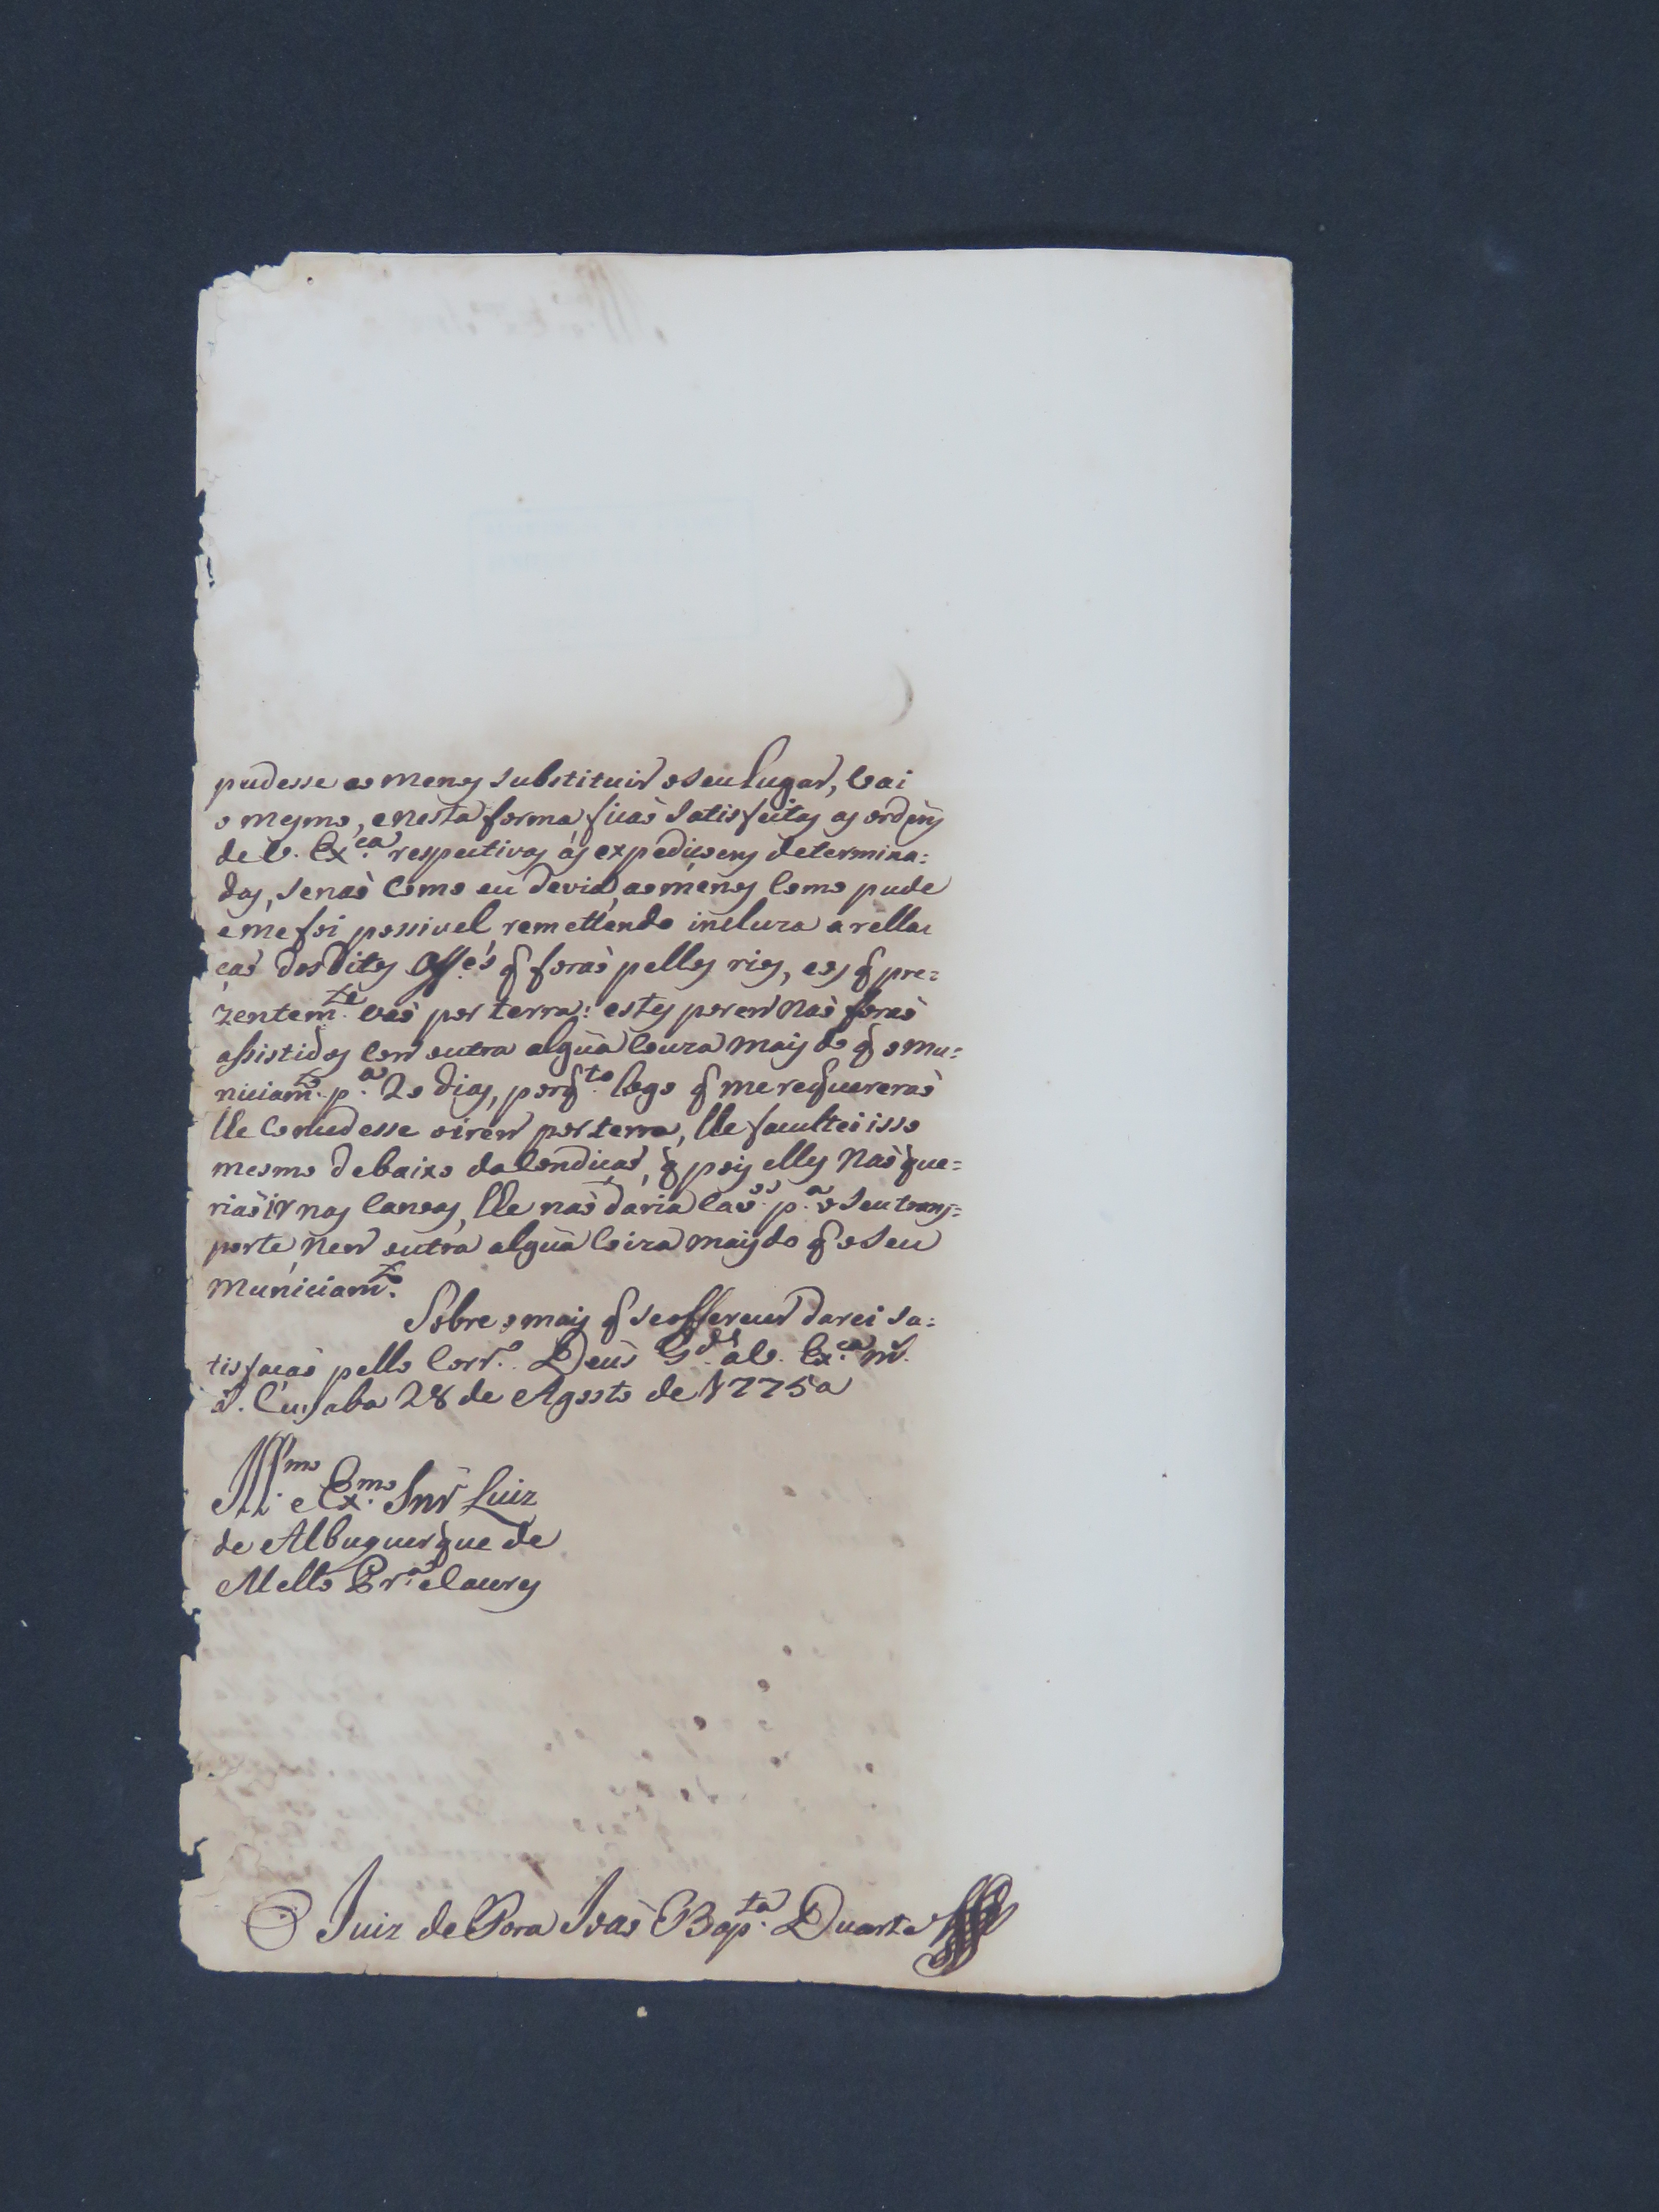 pudesse ao menos substituir o seu lugar, vai
o mesmo, e nesta forma ficaõ satisfeitas as ordens
de V. Exca. respectivas ás expediçoens determina=
das, senaõ como eu devia, ao menos como pude
e me foi possivel, remettendo incluza a rella
çaõ dos ditos Offes. q̃ foraõ pellos rios, e os q̃ pre=
zentemte. vaõ por terra: estes porem naõ foraõ
assistidos com outra algũa couza mais do q̃ o mu=
niciamto. pa. 20 dias, porqto. logo q̃ me requereraõ
lhe concedesse o irem por terra, lhe facultei isso
mesmo debaixo da condiçaõ, q̃ pois elles naõ que=
riaõ ir nas canoas, lhe naõ daria cavos. pa. o seu trans=
porte, nem outra algũa coiza mais do q̃ o seu
municiamto.
Sobre o mais q̃ se offerecer darei sa=
tisfaçaõ pello Corro. Deus Gde. a V. Exca. ms.
as. Cuyaba 28 de Agosto de 1775a
Illmo. e Exmo. Snr̃ Luiz
de Albuquerque de
Mello Pra. e Caceres
O Juiz de Fora Joaõ Bapta. Duarte